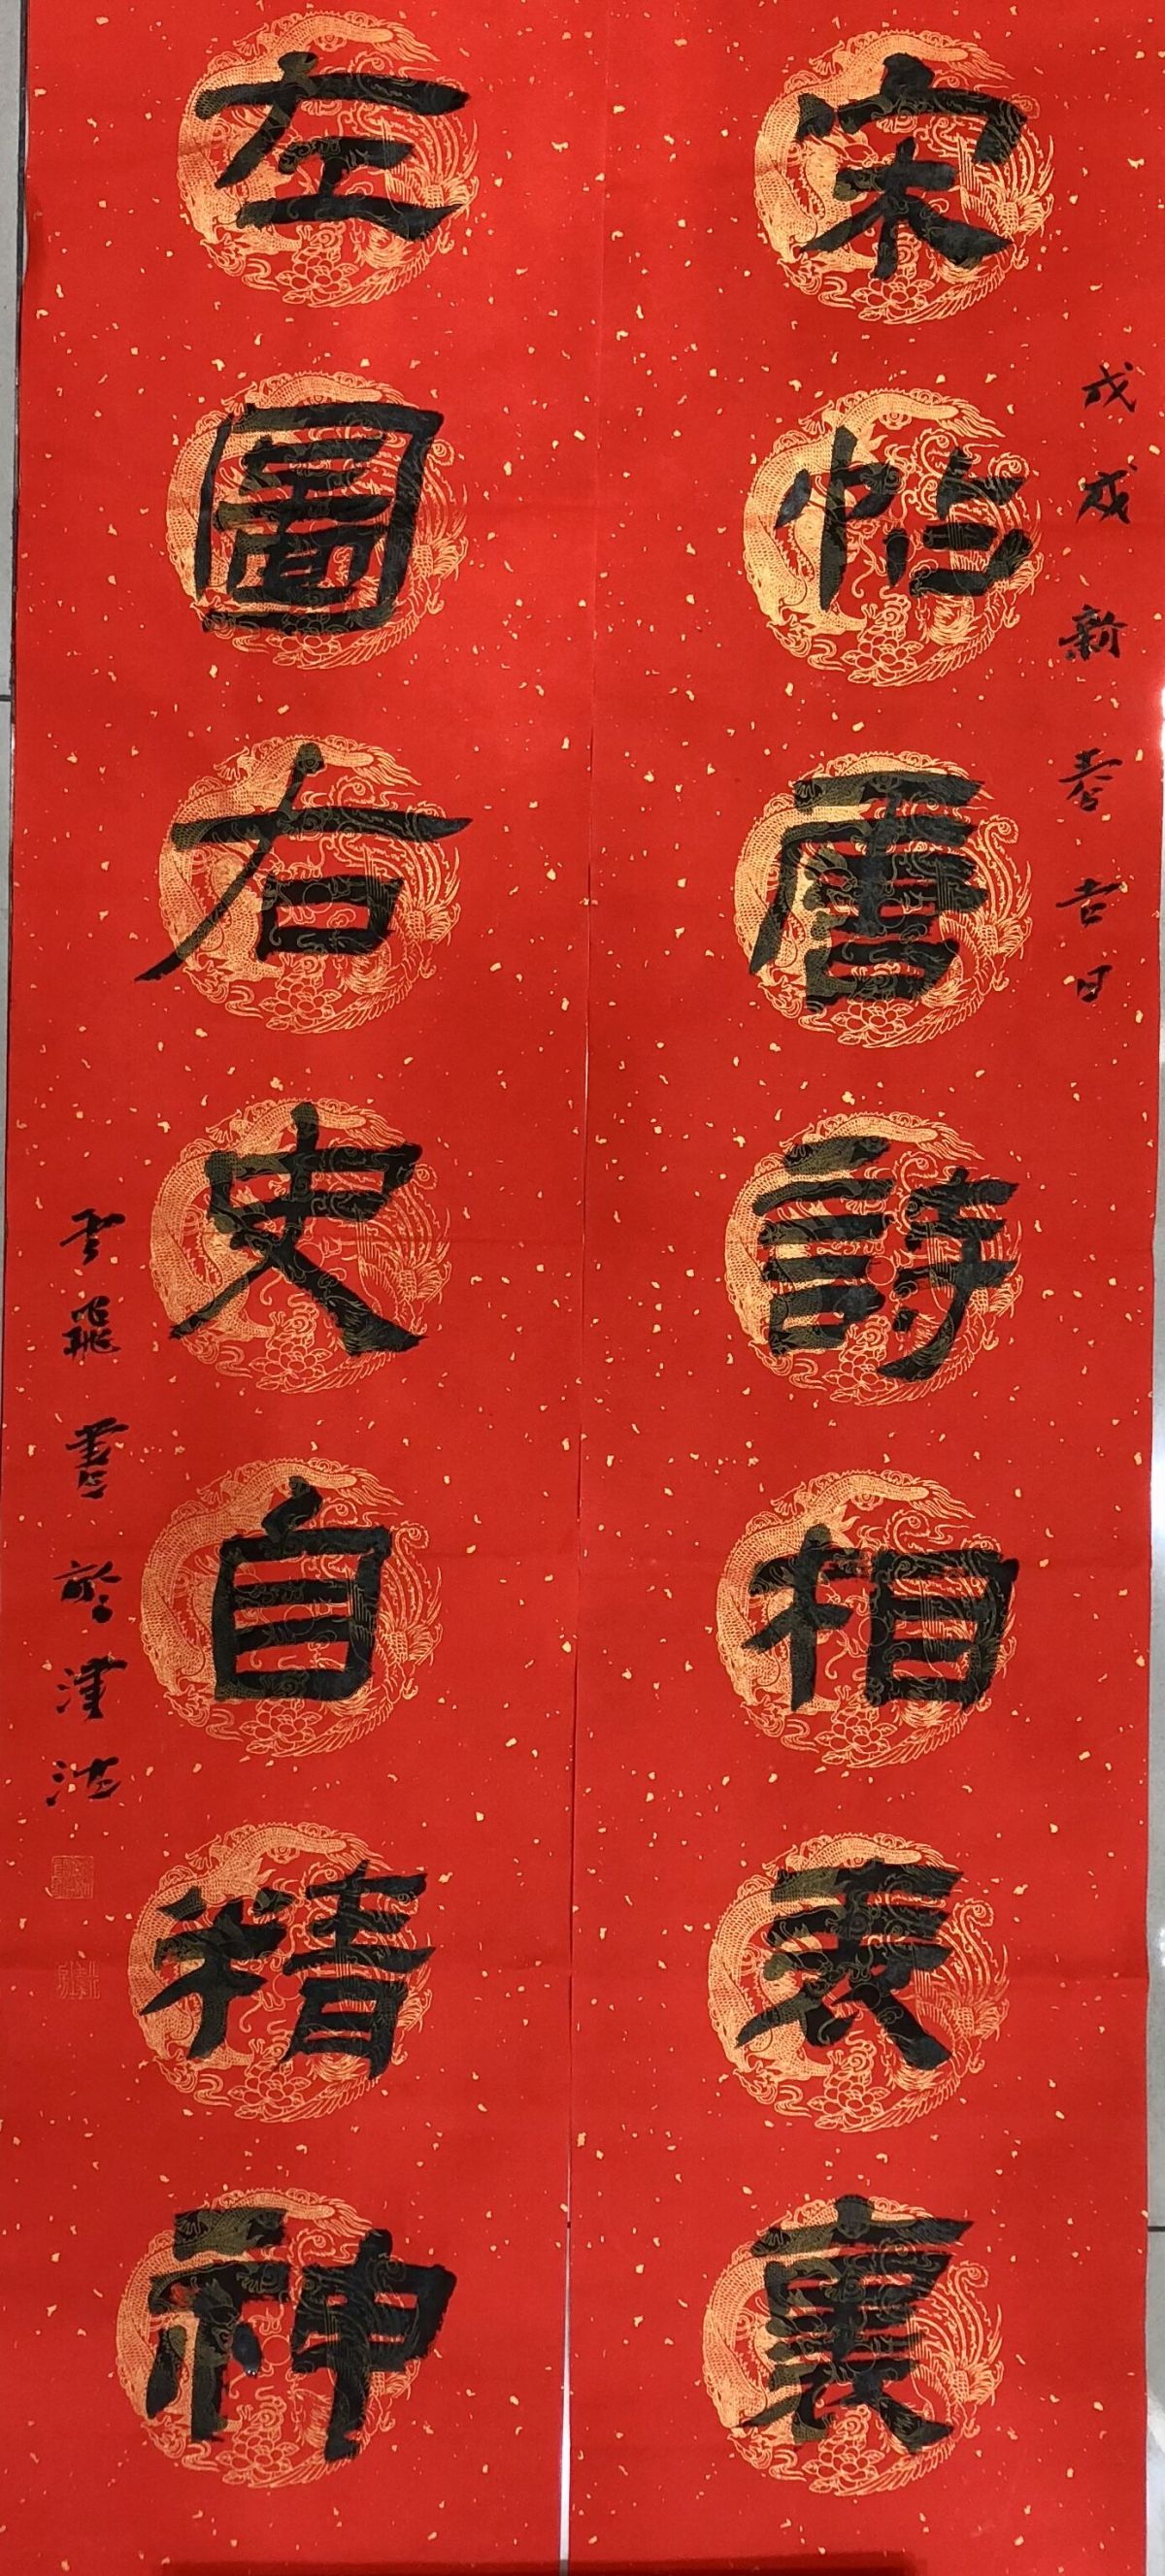 戊戌新春吉日
宋帖唐詩相表裏
左圖右史自精神
雲飛書於津沽